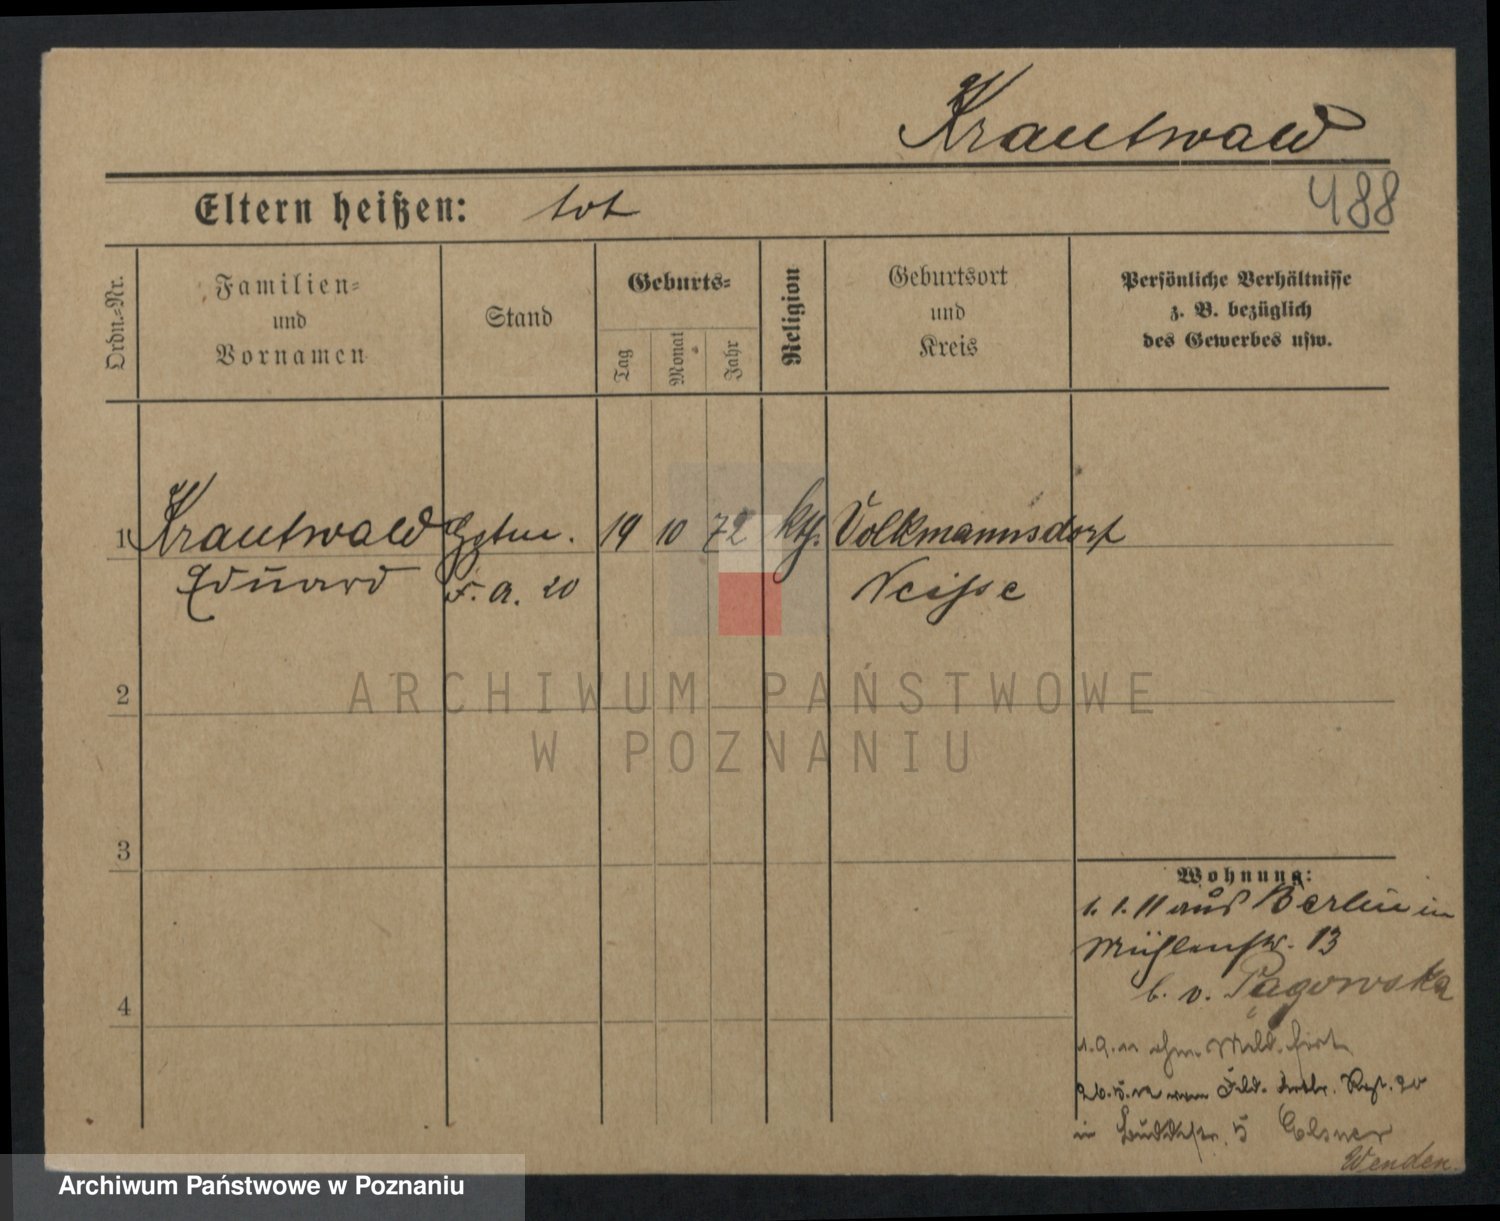 Krautwald
488
Eltern heißen: tot
Ordn.-Nr.
Familien-
und
Vornamen
Stand
Geburts-
Tag
Monat
Jahr
Religion
Geburtsort
und
Kreis
Persönliche Verhältnisse
z. B. bezüglich
des Gewerbes usw.
1 Krautwald 19 10 72 kth. Volkmannsdorf
Eduard F. A. 20 Neisse
2
ARCHIWUM PAŃSTWOWE
W POZNANIU
3
4
Wohnung:
1. 1. 11 aus Berlin in
Mühlenstr. 13
b. v. Pagowska
ohne Meld. fort
26.5. Feld. Regt. 20
in 5 Elsner
Wenden.
Archiwum Państwowe w Poznaniu